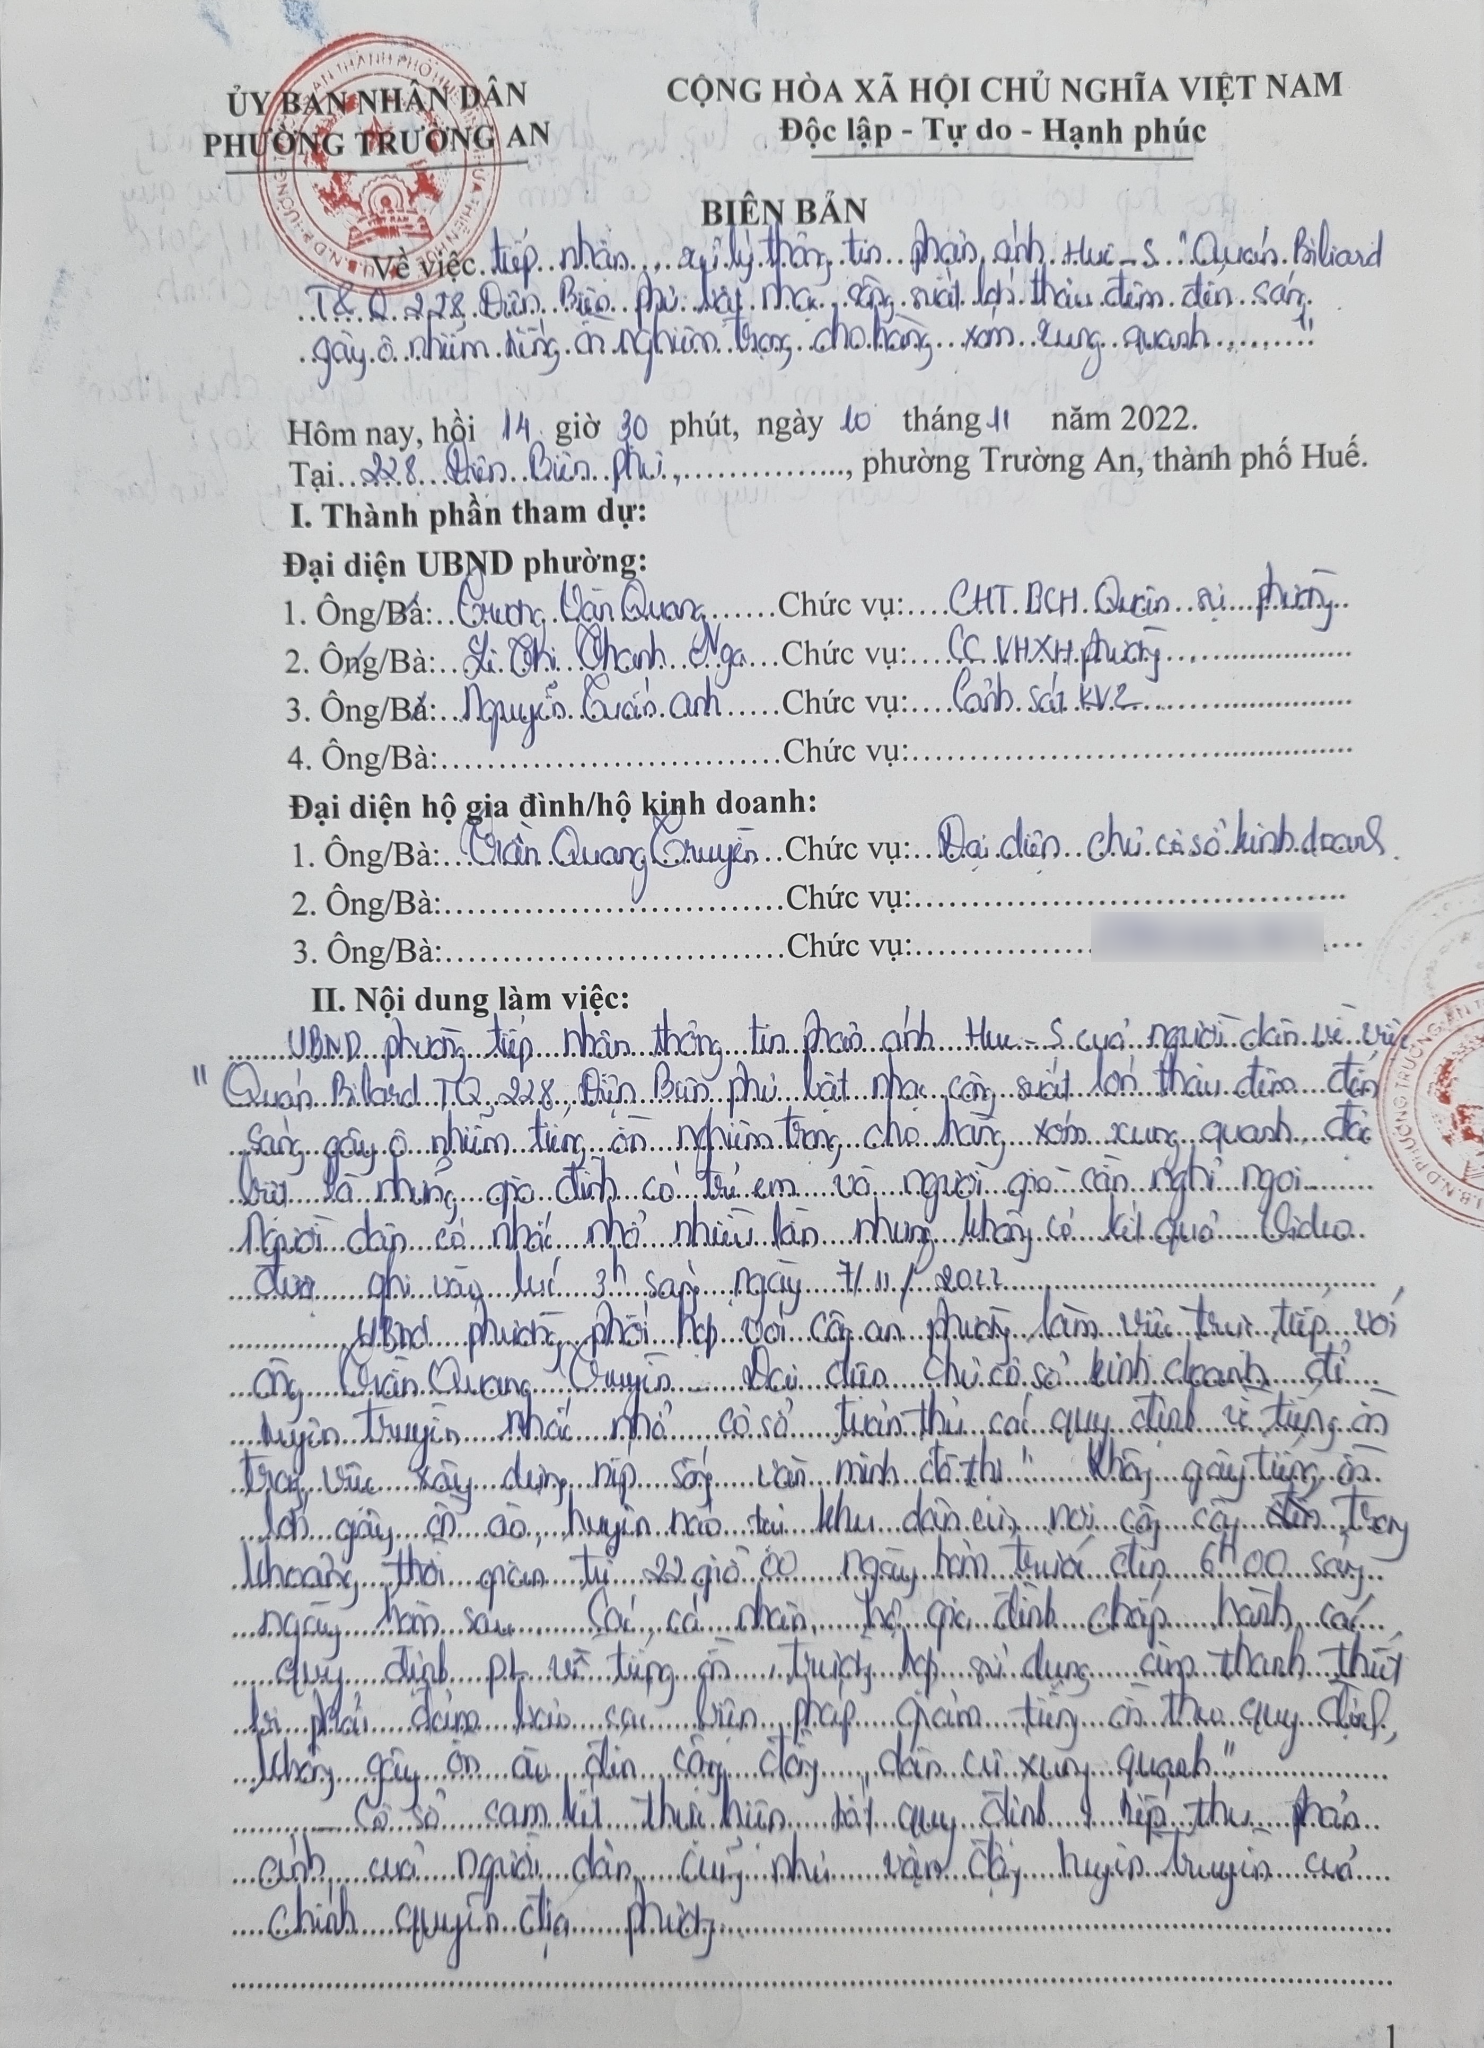 ỦY BAN NHÂN DÂN
PHƯỜNG TRƯỜNG AN
CỘNG HÒA XÃ HỘI CHỦ NGHĨA VIỆT NAM
Độc lập - Tự do - Hạnh phúc
BIÊN BẢN
Về việc tiếp nhận, xử lý thông tin phản ánh Hue-S "Quán Biliard
T&Q 228 Điện Biên Phủ bật nhạc công suất lớn thâu đêm đến sáng
gây ô nhiễm tiếng ồn nghiêm trọng cho hàng xóm xung quanh......."
Hôm nay, hồi 14 giờ 30 phút, ngày 10 tháng 11 năm 2022.
Tại 228 Điện Biên Phủ, ..............., phường Trường An, thành phố Huế.
I. Thành phần tham dự:
Đại diện UBND phường:
1. Ông/Bà: Trương Văn Quang Chức vụ: CHT.BCH Quân sự phường
2. Ông/Bà: Lê Thị Thanh Nga Chức vụ: CC.VHXH phường
3. Ông/Bà: Nguyễn Tuấn Anh Chức vụ: Cảnh sát KV2
4. Ông/Bà:..............................Chức vụ:..............................
Đại diện hộ gia đình/hộ kinh doanh:
1. Ông/Bà: Trần Quang Truyền Chức vụ: Đại diện chủ cơ sở kinh doanh
2. Ông/Bà:..............................Chức vụ:..............................
3. Ông/Bà:..............................Chức vụ:..............................
II. Nội dung làm việc:
UBND phường tiếp nhận thông tin phản ánh Hue-S của người dân về việc
"Quán Bilard TQ 228, Điện Biên Phủ bật nhạc công suất lớn thâu đêm đến
sáng gây ô nhiễm tiếng ồn nghiêm trọng cho hàng xóm xung quanh, đặc
biệt là những gia đình có trẻ em và người già cần nghỉ ngơi
Người dân có nhắc nhở nhiều lần nhưng không có kết quả. Video
được ghi vào lúc 3h sáng ngày 7/11/2022
UBND phường phối hợp với công an phường làm việc trực tiếp với
ông Trần Quang Truyền Đại diện chủ cơ sở kinh doanh để
tuyên truyền nhắc nhở cơ sở tuân thủ các quy định về tiếng ồn
trong việc xây dựng nếp sống văn minh đô thị "Không gây tiếng ồn
lớn gây ồn ào, huyên náo tại khu dân cư, nơi công cộng trong
khoảng thời gian từ 22 giờ 00 ngày hôm trước đến 6h00 sáng
ngày hôm sau. Các cá nhân, hộ gia đình chấp hành các
quy định PL về tiếng ồn, trường hợp sử dụng âm thanh thiết
bị phải đảm bảo các biện pháp giảm tiếng ồn theo quy định,
không gây ồn ào đến cộng đồng, dân cư xung quanh"
Cơ sở cam kết thực hiện tốt quy định, tiếp thu phản
ánh của người dân cũng như vận động tuyên truyền của
chính quyền địa phương
1